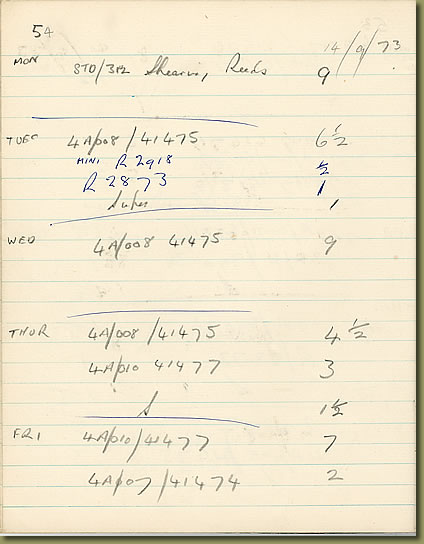 54
14/9/73
MON STD/3PL Shearing, Reeds 9
TUES 4A/008 / 41475 6 1/2
MINI R 2918 1/2
R 2873 1
1
WED 4A/008 41475 9
THUR 4A/008 / 41475 4 1/2
4A/010 41477 3
S 1 1/2
FRI 4A/010 / 41477 7
4A/007 / 41474 2